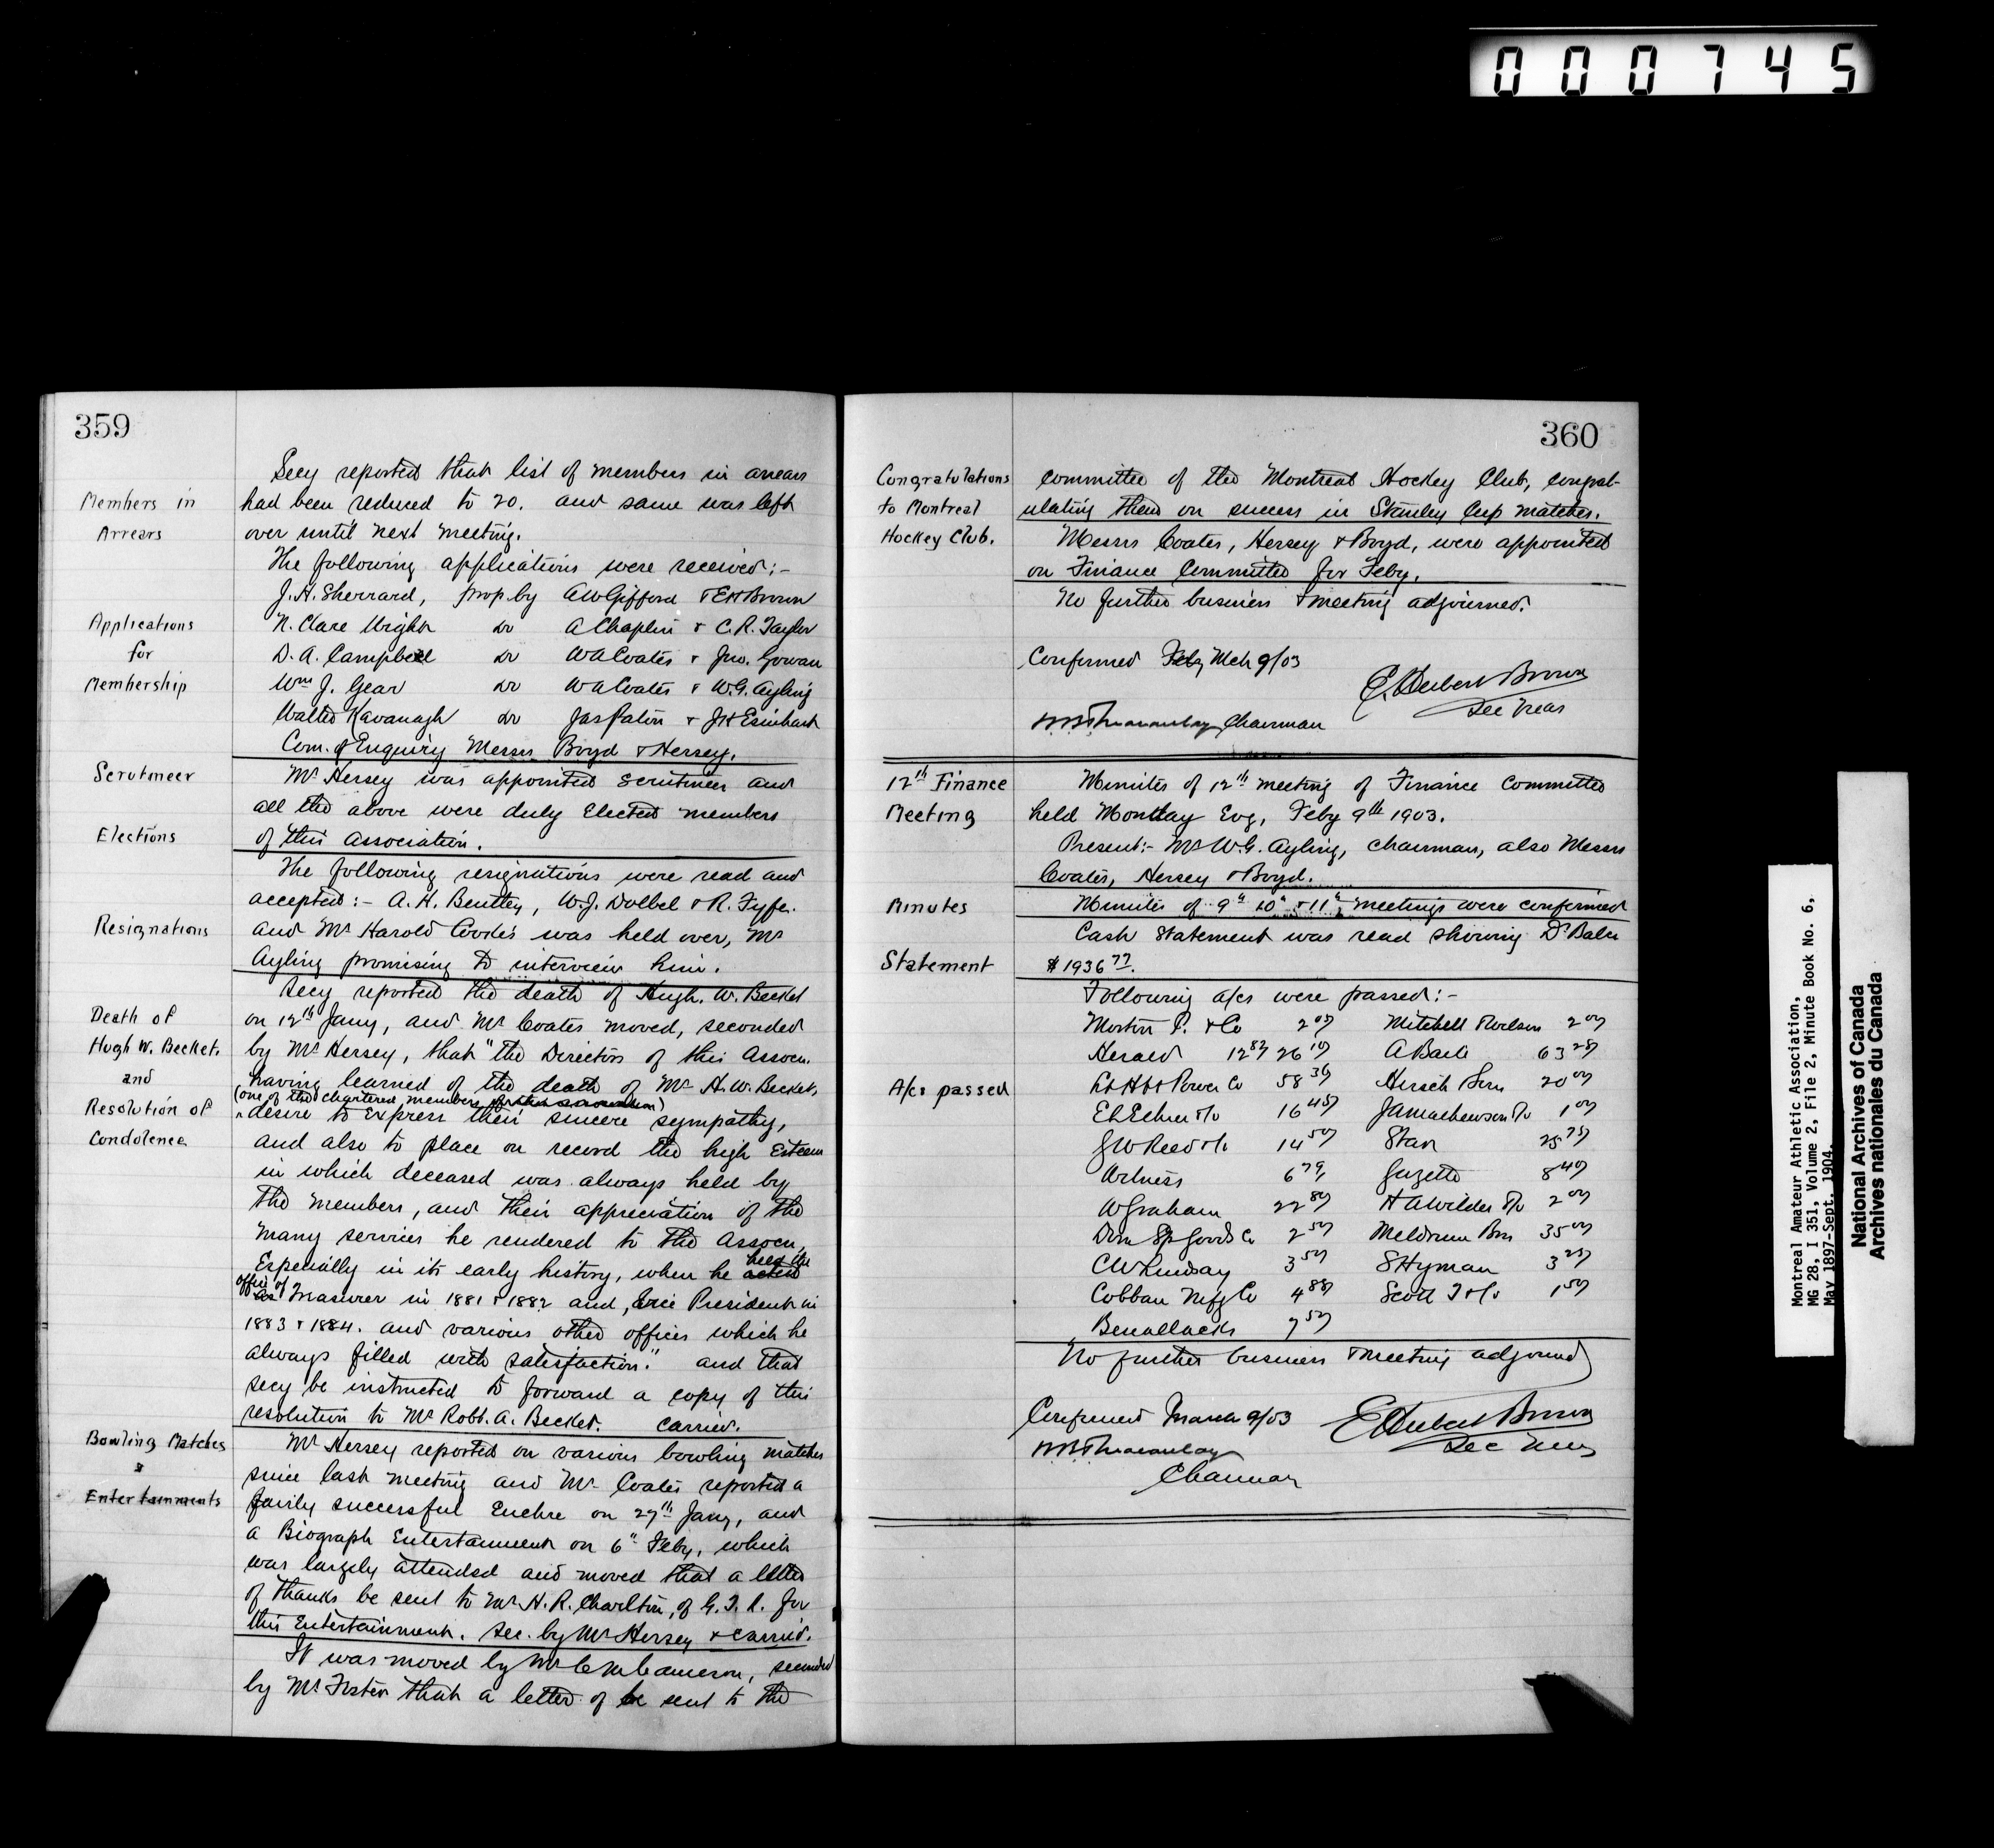 000745
359
Secy reported that list of members in arrears
Members in
had been reduced to 20. and same was left
Arrears
over until next meeting.
The following applications were received:-
J.H. Sherrard, prop. by A W Gifford & E H Brown
Applications
N. Clare Wright do A Chaplin & C.R. Taylor
for
D.A. Campbell do W A Coates & Jno. Gowan
Membership
Wm J. Gear do W A Coates & W.G. Ayling
Walter Kavanagh do Jas Paton & J H
Com. of Enquiry Messrs Boyd & Hersey.
Scrutineer
Mr Hersey was appointed Scrutineer and
all the above were duly Elected members
Elections
of this Association.
The following resignations were read and
accepted:- A.H. Bentley, W.J. Dolbel & R. Fyfe.
Resignations
and Mr Harold Cooke's was held over, Mr
Ayling promising to interview him.
Secy reported the death of Hugh. W. Becket
Death of
on 12th Jany, and Mr Coates moved, seconded
Hugh W. Becket.
by Mr Hersey, that "the Directors of this Assocn.
and
having learned of the death of Mr H.W. Becket,
(one of the chartered members of this association)
Resolution of
desire to Express their sincere sympathy,
Condolence
and also to place on record the high Esteem
in which deceased was always held by
the members, and their appreciation of the
many services he rendered to the Assocn,
Especially in its early history, when he acted held the
office of as Treasurer in 1881 & 1882 and, Vice President in
1883 & 1884. and various other offices which he
always filled with satisfaction." and that
secy be instructed to forward a copy of this
resolution to Mr Robt. A. Becket. Carried.
Bowling Matches
Mr Hersey reported on various bowling matches
&
since last meeting and Mr Coates reported a
Entertainments
fairly successful Euchre on 27th Jany, and
a Biograph Entertainment on 6" Feby, which
was largely attended and moved that a letter
of thanks be sent to Mr H.R. Charlton, of G.T.R. for
this Entertainment. Sec. by Mr Hersey & carried.
It was moved by Mr C M Cameron, seconded
by Mr Foster that a letter of be sent to the
360
Congratulations
committee of the Montreal Hockey Club, congrat-
to Montreal
ulating them on success in Stanley Cup matches.
Hockey Club.
Messrs Coates, Hersey & Boyd, were appointed
on Finance Committee for Feby.
No further business & meeting adjourned.
Confirmed Feby Mch 9/03
E. Herbert Brown
Sec Treas
Chairman
12th Finance
Minutes of 12th meeting of Finance Committee
Meeting
held Monday Evg, Feby 9th 1903.
Present:- Mr W.G. Ayling, chairman, also Messrs
Coates, Hersey & Boyd.
Minutes
Minutes of 9th 10th & 11th meetings were confirmed
Cash Statement was read showing Dr Balce
Statement
$1936 77.
Following a/cs were passed:-
Morton P. & Co 2 05 Mitchell 2 00
Herald 12 83 26 10 63 28
A/cs passed
Power Co 58 36 Hirsch Sons 20 00
16 45 J A Mathewson Co 1 00
G W Reed & Co 14 50 Star 25 75
Witness 6 79 Gazette 8 40
W Graham 22 80 H A Wilder Co 2 00
Dom Sp Goods Co 2 50 Meldrum Bros 35 00
C W Lindsay 3 50 S Hyman 3 25
Cobban Mfg Co 4 88 Scott J & Co 1 50
Benallacks 7 50
No further business & meeting adjourned
Confirmed March 9/03
E Herbert Brown
Sec Treas
Chairman
Montreal Amateur Athletic Association,
MG 28, I 351, Volume 2, File 2, Minute Book No. 6,
May 1897-Sept. 1904.
National Archives of Canada
Archives nationales du Canada